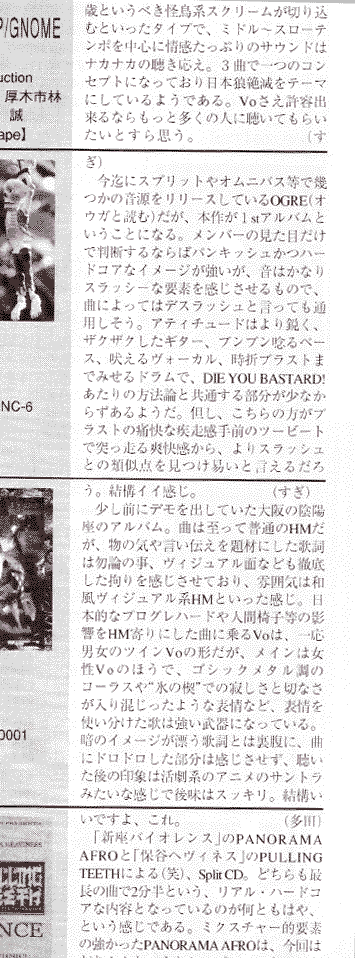 P/GNOME
uction
厚木市林
誠
ape】
NC-6
0001
歳というべき怪鳥系スクリームが切り込
むといったタイプで、ミドル〜スローテ
ンポを中心に情感たっぷりのサウンドは
ナカナカの聴き応え。3曲で一つのコン
セプトになっており日本狼絶滅をテーマ
にしているようである。Voさえ許容出
来るならもっと多くの人に聴いてもらい
たいとすら思う。（す
ぎ）
今迄にスプリットやオムニバス等で幾
つかの音源をリリースしているOGRE(オ
ウガと読む)だが、本作が1stアルバムと
いうことになる。メンバーの見た目だけ
で判断するならばパンキッシュかつハー
ドコアなイメージが強いが、音はかなり
スラッシーな要素を感じさせるもので、
曲によってはデスラッシュと言っても通
用しそう。アティチュードはより鋭く、
ザクザクしたギター、ブンブン唸るベー
ス、吠えるヴォーカル、時折ブラストま
でみせるドラムで、DIE YOU BASTARD!
あたりの方法論と共通する部分が少なか
らずあるようだ。但し、こちらの方がブ
ラストの痛快な疾走感手前のツービート
で突っ走る爽快感から、よりスラッシュ
との類似点を見つけ易いと言えるだろ
う。結構イイ感じ。（すぎ）
少し前にデモを出していた大阪の陰陽
座のアルバム。曲は至って普通のHMだ
が、物の気や言い伝えを題材にした歌詞
は勿論の事、ヴィジュアル面なども徹底
した拘りを感じさせており、雰囲気は和
風ヴィジュアル系HMといった感じ。日
本的なプログレハードや人間椅子等の影
響をHM寄りにした曲に乗るVoは、一応
男女のツインVoの形だが、メインは女
性Voのほうで、ゴシックメタル調の
コーラスや“氷の楔”での寂しさと切なさ
が入り混じったような表情など、表情を
使い分けた歌は強い武器になっている。
暗のイメージが漂う歌詞とは裏腹に、曲
にドロドロした部分は感じさせず、聴い
た後の印象は活劇系のアニメのサントラ
みたいな感じで後味はスッキリ。結構い
いですよ、これ。（多田）
「新座バイオレンス」のPANORAMA
AFROと「保谷ヘヴィネス」のPULLING
TEETHによる(笑)、Split CD。どちらも最
長の曲で2分半という、リアル・ハードコ
アな内容となっているのが何ともはや、
という感じである。ミクスチャー的要素
の強かったPANORAMA AFROは、今回は